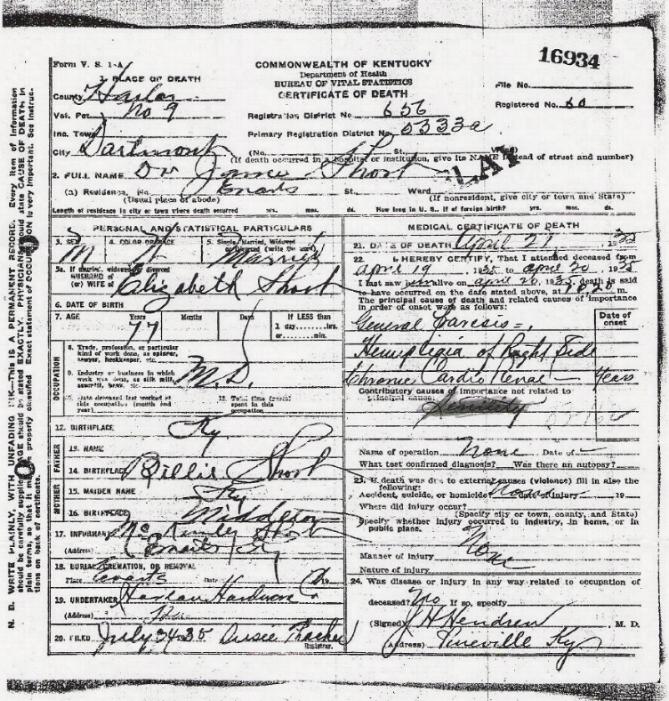 16934
Form V. S. 1-A
COMMONWEALTH OF KENTUCKY
Department of Health
BUREAU OF VITAL STATISTICS
CERTIFICATE OF DEATH
1. PLACE OF DEATH
File No.
County Harlan
Registered No. 60
Vot. Pct. No 9
Registration District No. 656
Inc. Town
Primary Registration District No. 0333a
City Dartmont (No. St.
(If death occurred in a hospital or institution, give its NAME instead of street and number)
2. FULL NAME Dr James Short
(a) Residence, No. Evarts St. Ward
(Usual place of abode) (If nonresident, give city or town and State)
Length of residence in city or town where death occurred yrs. mos. ds. How long in U. S., if of foreign birth? yrs. mos. ds.
PERSONAL AND STATISTICAL PARTICULARS
3. SEX M 4. COLOR OR RACE W 5. Single, Married, Widowed or Divorced (write the word) Married
5a. If married, widowed or divorced
HUSBAND of
(or) WIFE of Elizabeth Short
6. DATE OF BIRTH
7. AGE Years 77 Months Days If LESS than
1 day, hrs.
or min.
OCCUPATION
8. Trade, profession, or particular
kind of work done, as spinner,
sawyer, bookkeeper, etc.
M.D.
9. Industry or business in which
work was done, as silk mill,
sawmill, bank, etc.
10. Date deceased last worked at
this occupation (month and
year)
11. Total time (years)
spent in this
occupation
12. BIRTHPLACE Ky
FATHER
13. NAME Billie Short
14. BIRTHPLACE Ky
MOTHER
15. MAIDEN NAME Middleton
16. BIRTHPLACE
17. INFORMANT McKinley Short
(Address) Evarts Ky
18. BURIAL, CREMATION, OR REMOVAL
Place Evarts Date 19
19. UNDERTAKER Harlan Hardware
(Address)
20. FILED July 24 35 Susie Thacker
Registrar.
MEDICAL CERTIFICATE OF DEATH
21. DATE OF DEATH April 21 1935
22. I HEREBY CERTIFY, That I attended deceased from
April 19 1935 to April 20 1935
I last saw him alive on April 20 1935 death is said
to have occurred on the date stated above, at m.
The principal cause of death and related causes of importance
in order of onset were as follows:
Date of
onset
General Paresis
Hemiplegia of Right Side
Chronic Cardio Renal Years
Contributory causes of importance not related to
principal cause:
Senility
Name of operation None Date of
What test confirmed diagnosis? Was there an autopsy?
23. If death was due to external causes (violence) fill in also the
following:
Accident, suicide, or homicide? None Date of injury 19
Where did injury occur?
(Specify city or town, county, and State)
Specify whether injury occurred in industry, in home, or in
public place.
None
Manner of injury
Nature of injury
24. Was disease or injury in any way related to occupation of
deceased? No If so, specify
(Signed) J H Hendren M. D.
(Address) Pineville Ky
N. B. WRITE PLAINLY, WITH UNFADING INK—THIS IS A PERMANENT RECORD. Every item of information
should be carefully supplied. AGE should be stated EXACTLY. PHYSICIANS should state CAUSE OF DEATH in
plain terms, so that it may be properly classified. Exact statement of OCCUPATION is very important. See instruc-
tions on back of certificate.